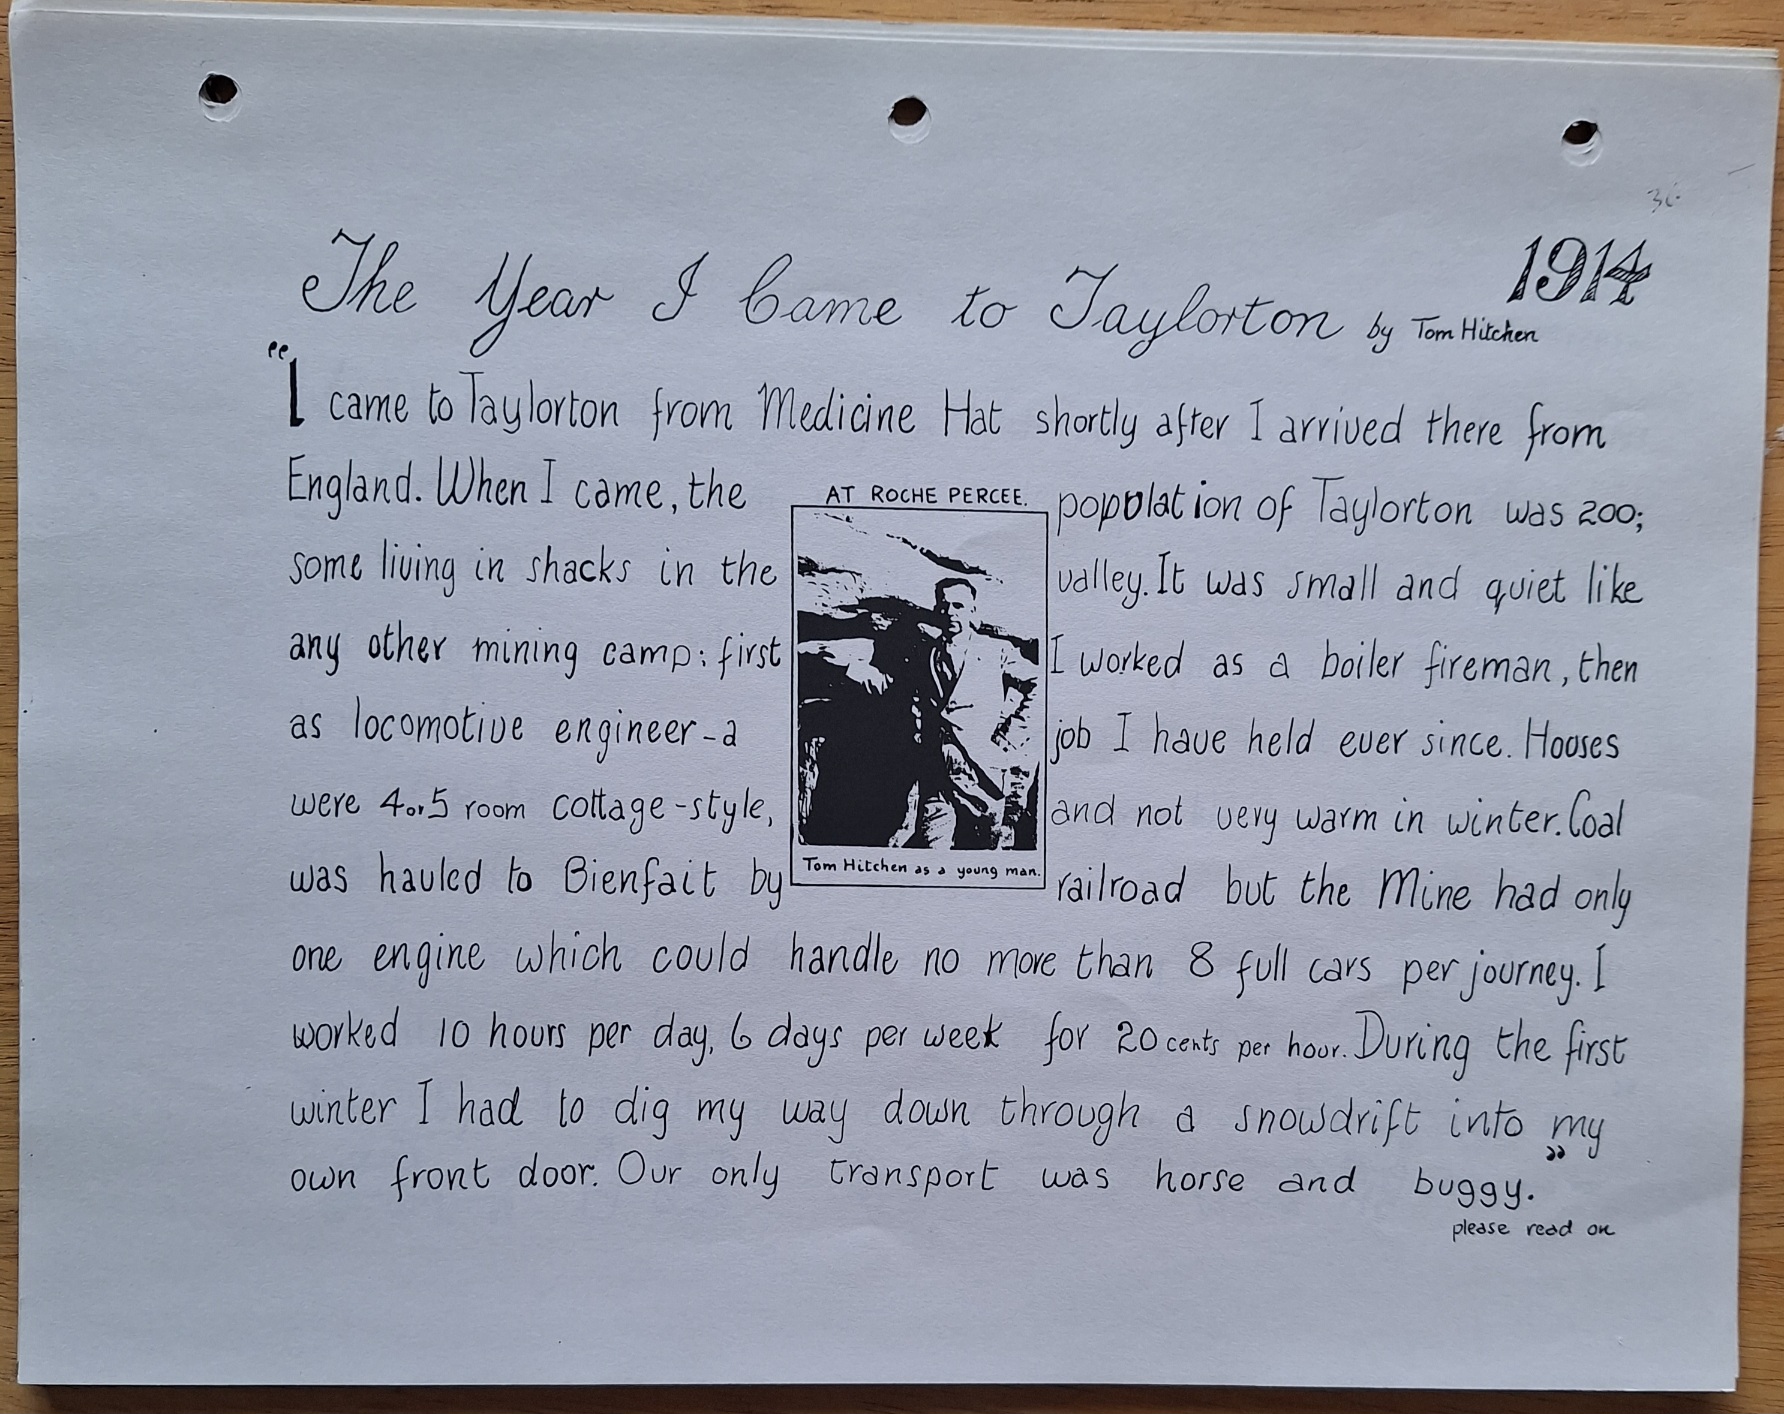 The Year I Came to Taylorton by Tom Hitchen
1914
"I came to Taylorton from Medicine Hat shortly after I arrived there from
England. When I came, the population of Taylorton was 200;
some living in shacks in the valley. It was small and quiet like
any other mining camp: first I worked as a boiler fireman, then
as locomotive engineer-a job I have held ever since. Houses
were 4 or 5 room cottage-style, and not very warm in winter. Coal
was hauled to Bienfait by railroad but the Mine had only
one engine which could handle no more than 8 full cars per journey. I
worked 10 hours per day, 6 days per week for 20 cents per hour. During the first
winter I had to dig my way down through a snowdrift into my
own front door. Our only transport was horse and buggy."
please read on
AT ROCHE PERCEE.
Tom Hitchen as a young man.